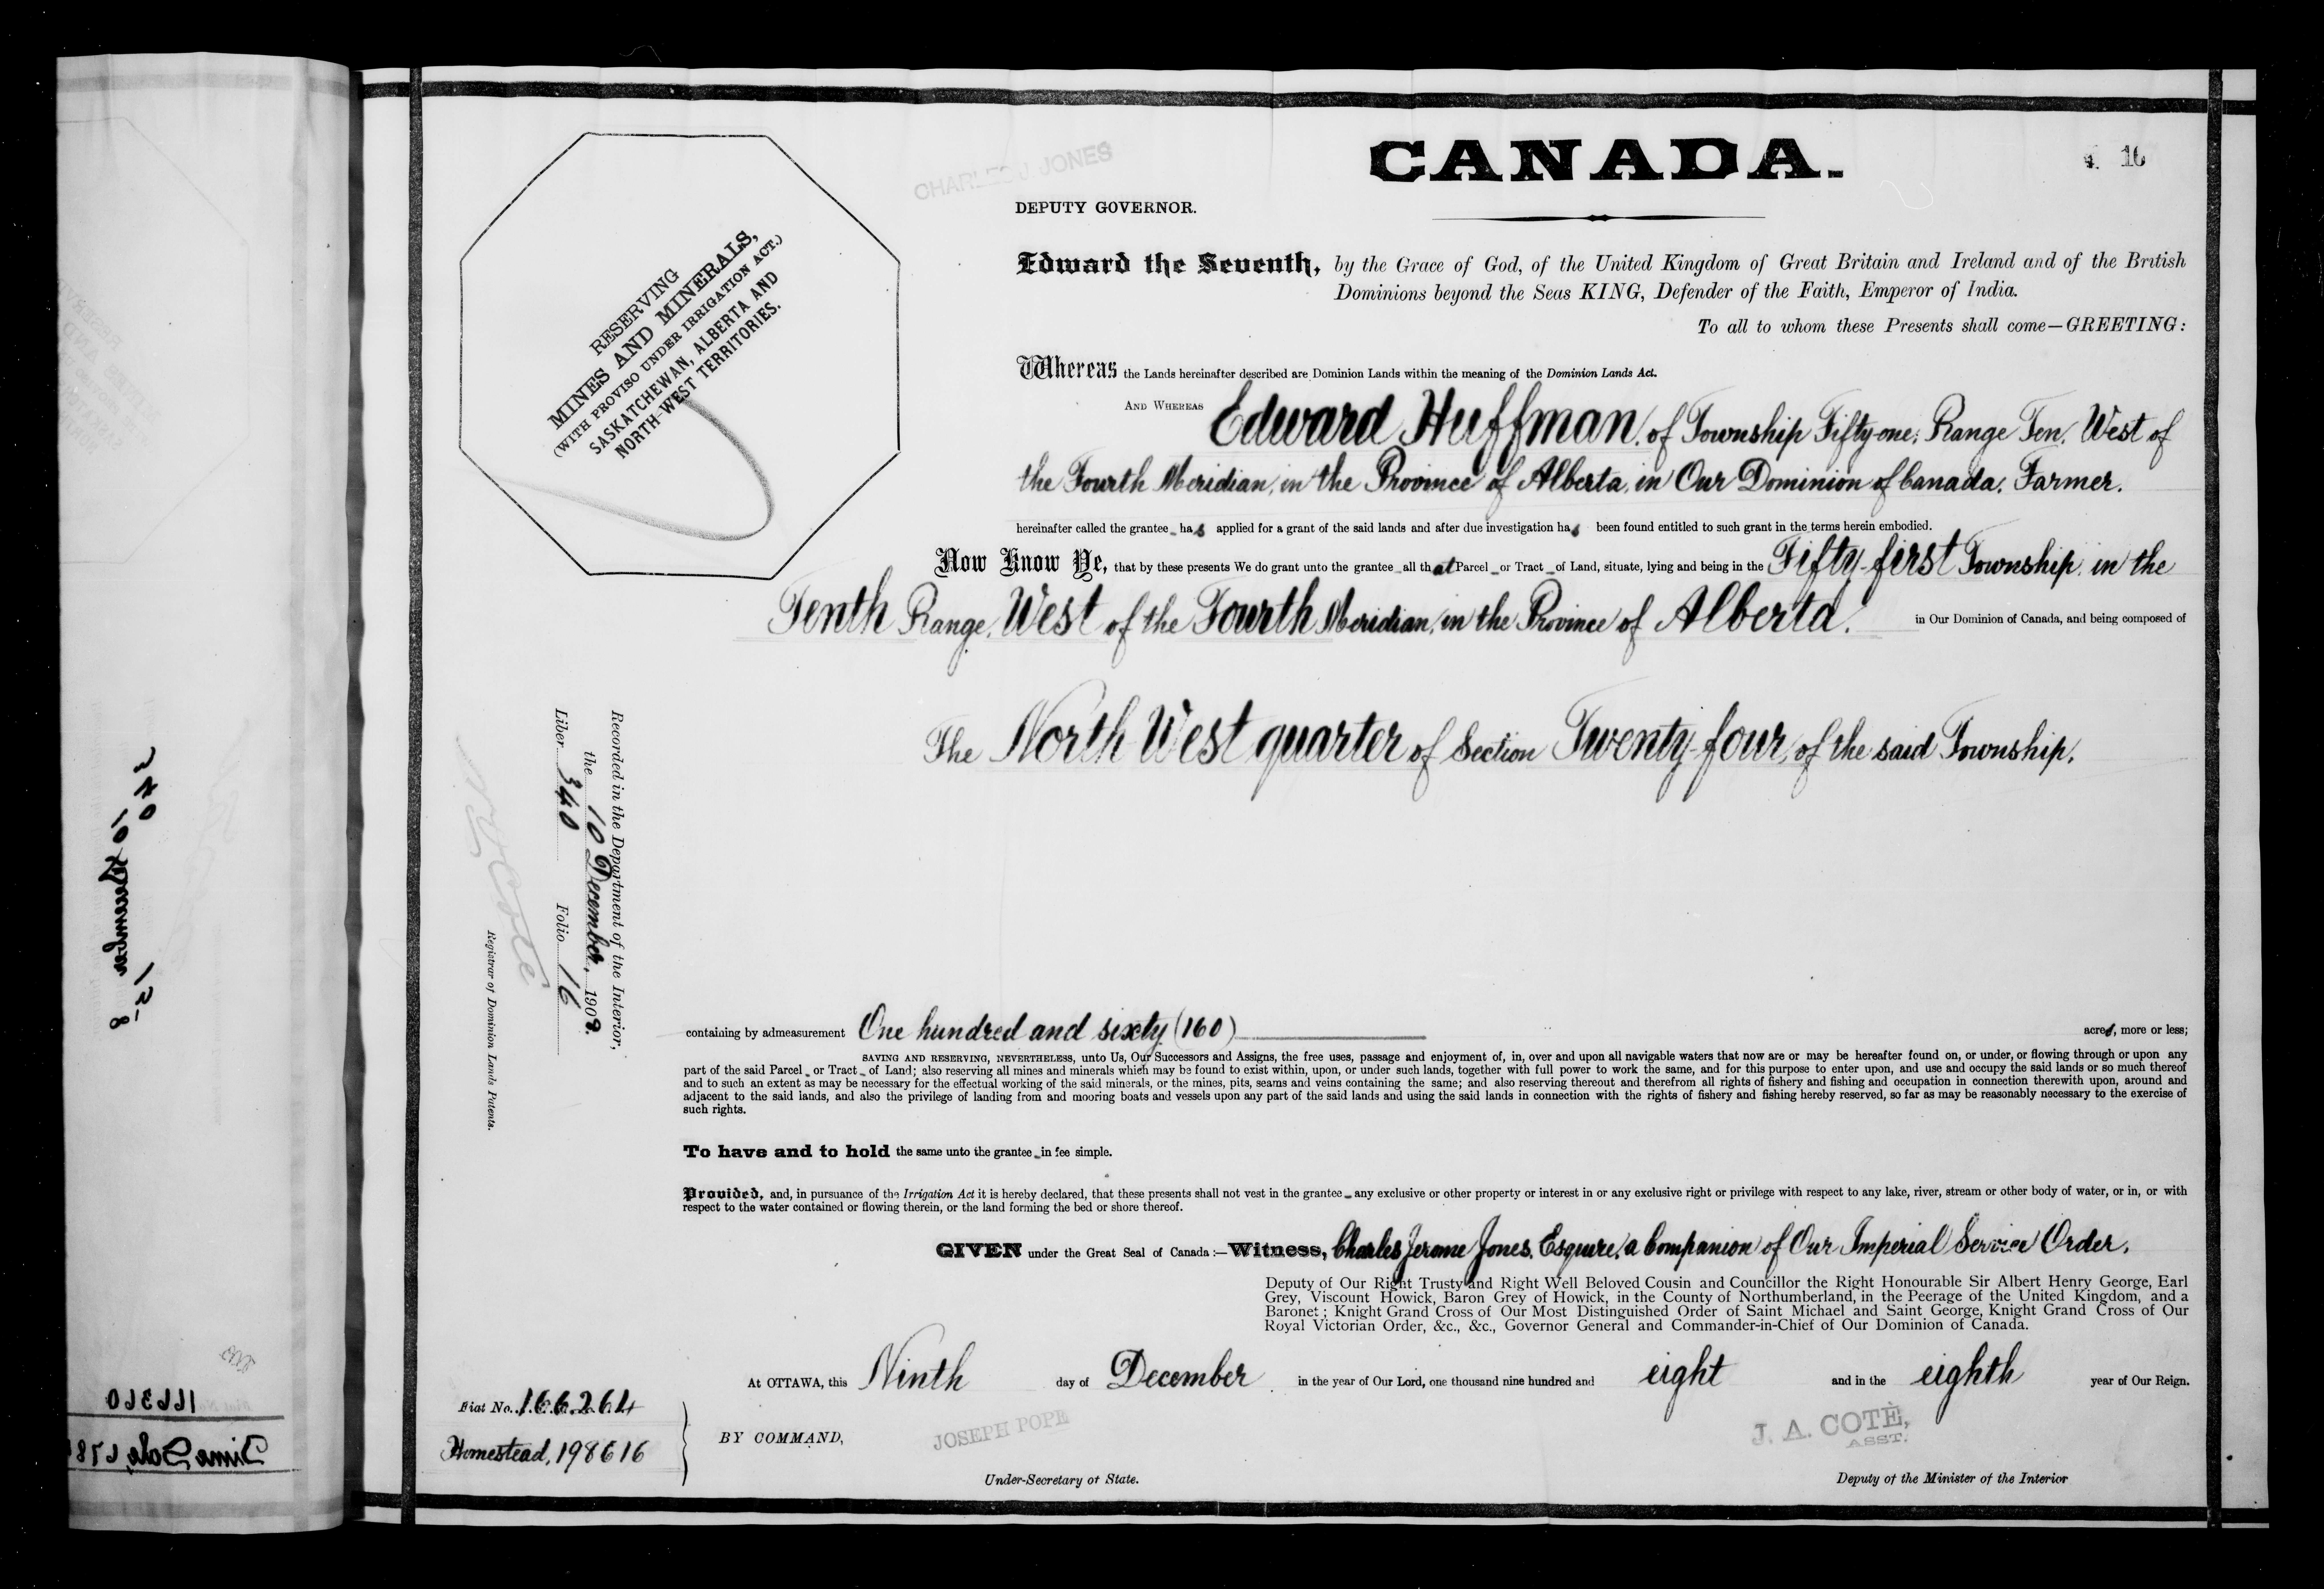 CANADA.
16
CHARLES J JONES
DEPUTY GOVERNOR.
RESERVING
MINES AND MINERALS,
(WITH PROVISO UNDER IRRIGATION ACT.)
SASKATCHEWAN, ALBERTA AND
NORTH-WEST TERRITORIES.
Edward the Seventh, by the Grace of God, of the United Kingdom of Great Britain and Ireland and of the British
Dominions beyond the Seas KING, Defender of the Faith, Emperor of India.
To all to whom these Presents shall come—GREETING:
Whereas the Lands hereinafter described are Dominion Lands within the meaning of the Dominion Lands Act.
AND WHEREAS Edward Huffman, of Township Fifty-one, Range Ten, West of
the Fourth Meridian, in the Province of Alberta, in Our Dominion of Canada, Farmer.
hereinafter called the grantee has applied for a grant of the said lands and after due investigation has been found entitled to such grant in the terms herein embodied.
Now Know Ye, that by these presents We do grant unto the grantee all that Parcel or Tract of Land, situate, lying and being in the Fifty-first Township, in the
Tenth Range, West of the Fourth Meridian, in the Province of Alberta, in Our Dominion of Canada, and being composed of
The North West quarter of Section Twenty-four, of the said Township.
Recorded in the Department of the Interior,
the 10 December, 1908.
Liber 340 Folio 16
N. O. Coté
Registrar of Dominion Lands Patents.
containing by admeasurement One hundred and sixty (160) acres, more or less;
SAVING AND RESERVING, NEVERTHELESS, unto Us, Our Successors and Assigns, the free uses, passage and enjoyment of, in, over and upon all navigable waters that now are or may be hereafter found on, or under, or flowing through or upon any
part of the said Parcel or Tract of Land; also reserving all mines and minerals which may be found to exist within, upon, or under such lands, together with full power to work the same, and for this purpose to enter upon, and use and occupy the said lands or so much thereof
and to such an extent as may be necessary for the effectual working of the said minerals, or the mines, pits, seams and veins containing the same; and also reserving thereout and therefrom all rights of fishery and fishing and occupation in connection therewith upon, around and
adjacent to the said lands, and also the privilege of landing from and mooring boats and vessels upon any part of the said lands and using the said lands in connection with the rights of fishery and fishing hereby reserved, so far as may be reasonably necessary to the exercise of
such rights.
To have and to hold the same unto the grantee in fee simple.
Provided, and, in pursuance of the Irrigation Act it is hereby declared, that these presents shall not vest in the grantee any exclusive or other property or interest in or any exclusive right or privilege with respect to any lake, river, stream or other body of water, or in, or with
respect to the water contained or flowing therein, or the land forming the bed or shore thereof.
GIVEN under the Great Seal of Canada:—Witness, Charles Jerome Jones, Esquire, a Companion of Our Imperial Service Order,
Deputy of Our Right Trusty and Right Well Beloved Cousin and Councillor the Right Honourable Sir Albert Henry George, Earl
Grey, Viscount Howick, Baron Grey of Howick, in the County of Northumberland, in the Peerage of the United Kingdom, and a
Baronet; Knight Grand Cross of Our Most Distinguished Order of Saint Michael and Saint George, Knight Grand Cross of Our
Royal Victorian Order, &c., &c., Governor General and Commander-in-Chief of Our Dominion of Canada.
At OTTAWA, this Ninth day of December in the year of Our Lord, one thousand nine hundred and eight and in the eighth year of Our Reign.
Fiat No. 166264
Homestead, 198616
BY COMMAND,
JOSEPH POPE
Under-Secretary of State.
J. A. COTÈ,
ASST.
Deputy of the Minister of the Interior